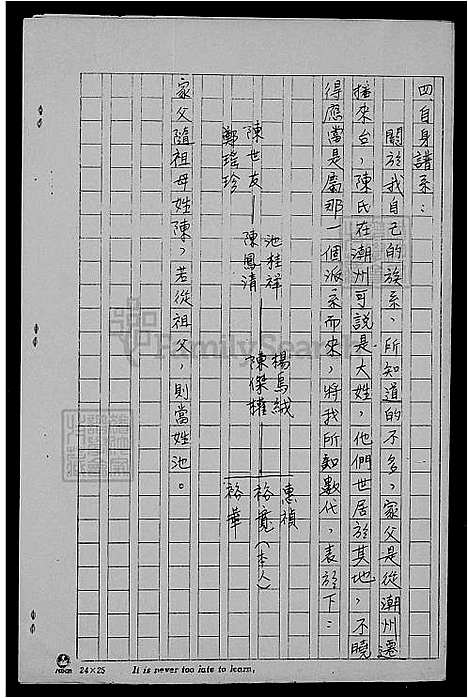 四自身譜系：
關於我自己的族系、所知道的不多，家父是從潮州遷
播來台，陳氏在潮州可說是大姓，他們世居於其地，不曉
得應當是屬那一個派系而來，將我所知數代，表於下：
池桂祥 楊烏絨 惠禎
陳世友 陳鳳清 陳傑權 裕寬（本人）
鄭瑤珍 裕華
家父隨祖母姓陳，若從祖父，則當姓池。
FamilySearch
24×25 It is never too late to learn,